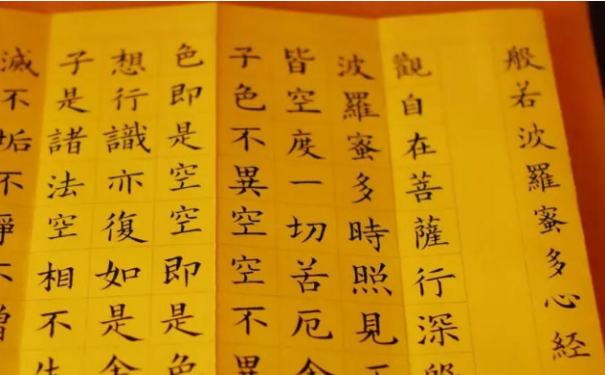 般若波羅蜜多心経
觀自在菩薩行深般
波羅蜜多時照見
皆空度一切苦厄舍
子色不異空空不異
色即是空空即是色
想行識亦復如是舍
子是諸法空相不生
滅不垢不淨不增